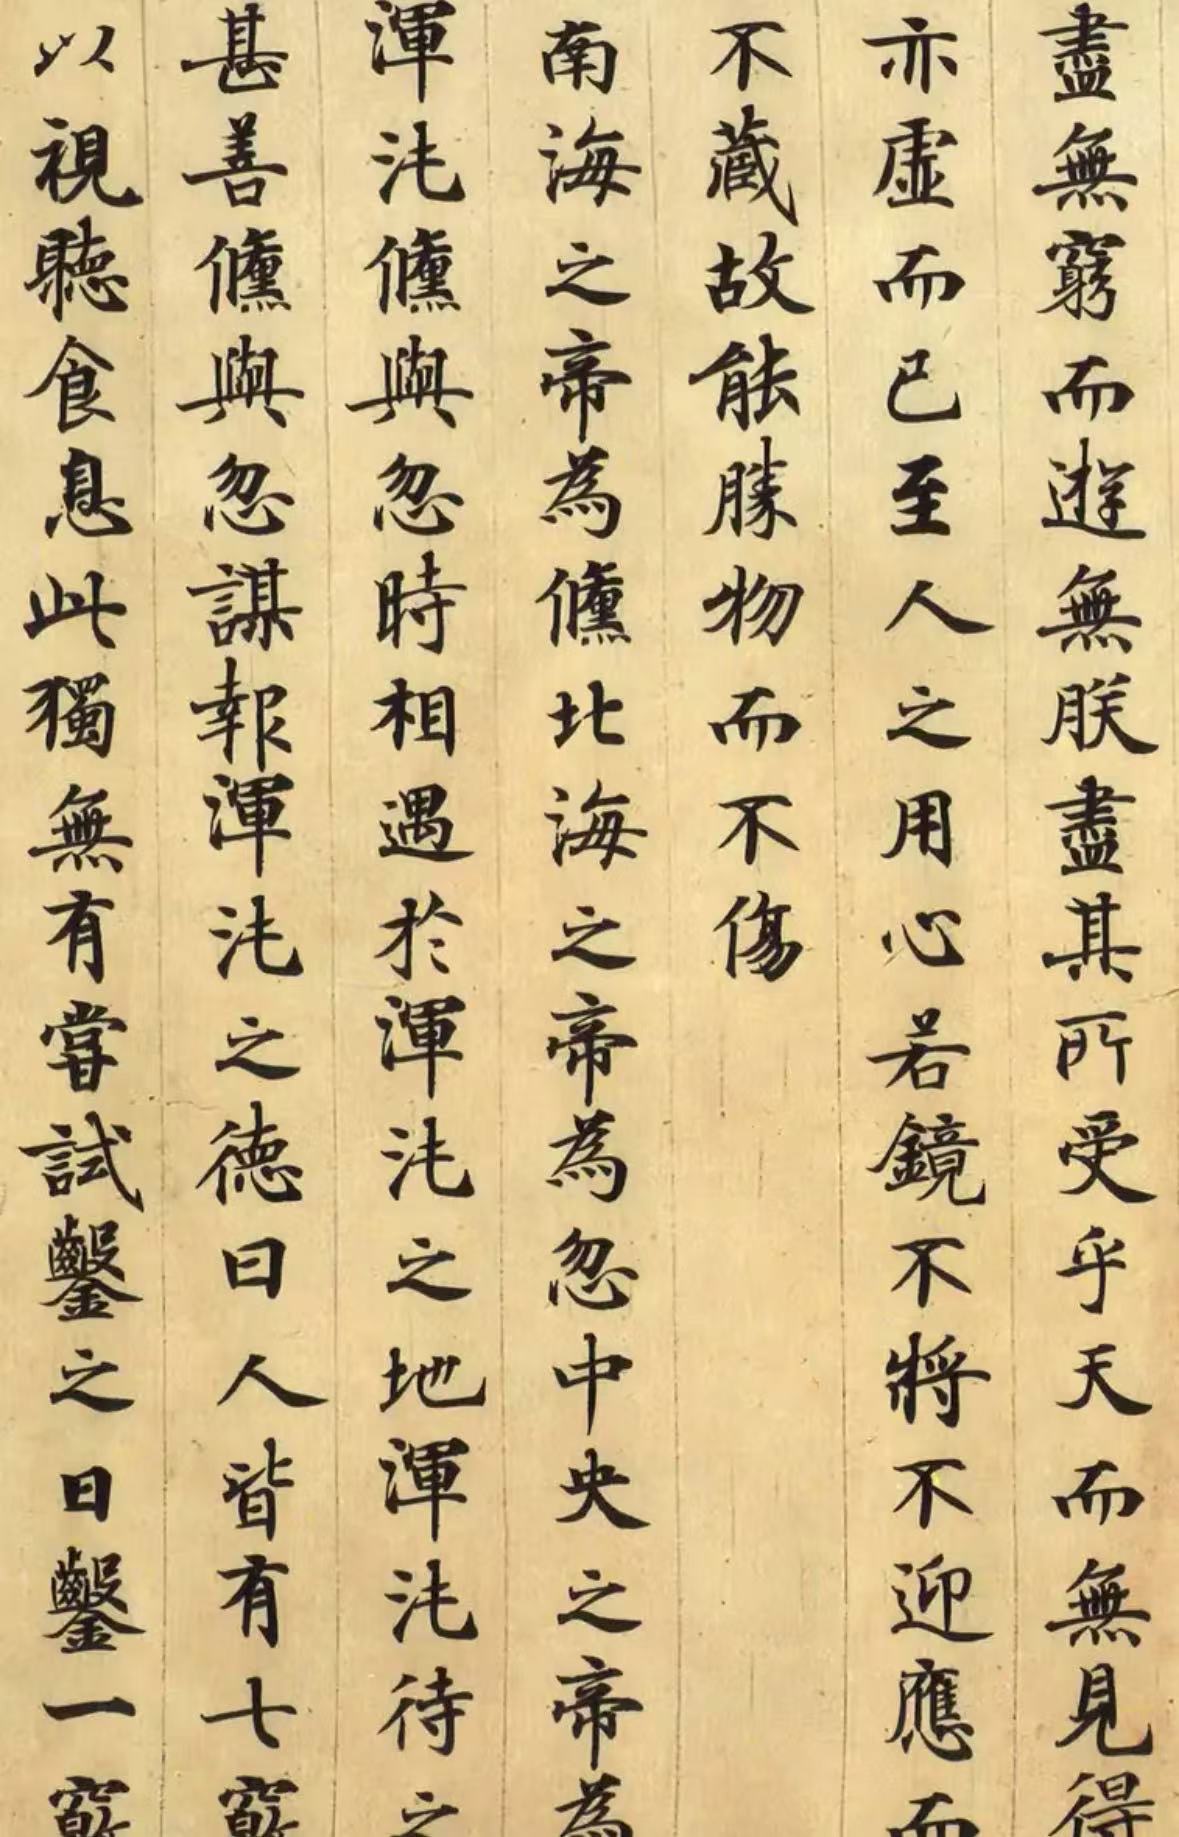 盡無窮而遊無朕盡其所受乎天而無見得
亦虛而已至人之用心若鏡不將不迎應而
不藏故能勝物而不傷
南海之帝為儵北海之帝為忽中央之帝為
渾沌儵與忽時相遇於渾沌之地渾沌待之
甚善儵與忽謀報渾沌之德曰人皆有七竅
以視聽食息此獨無有嘗試鑿之日鑿一竅